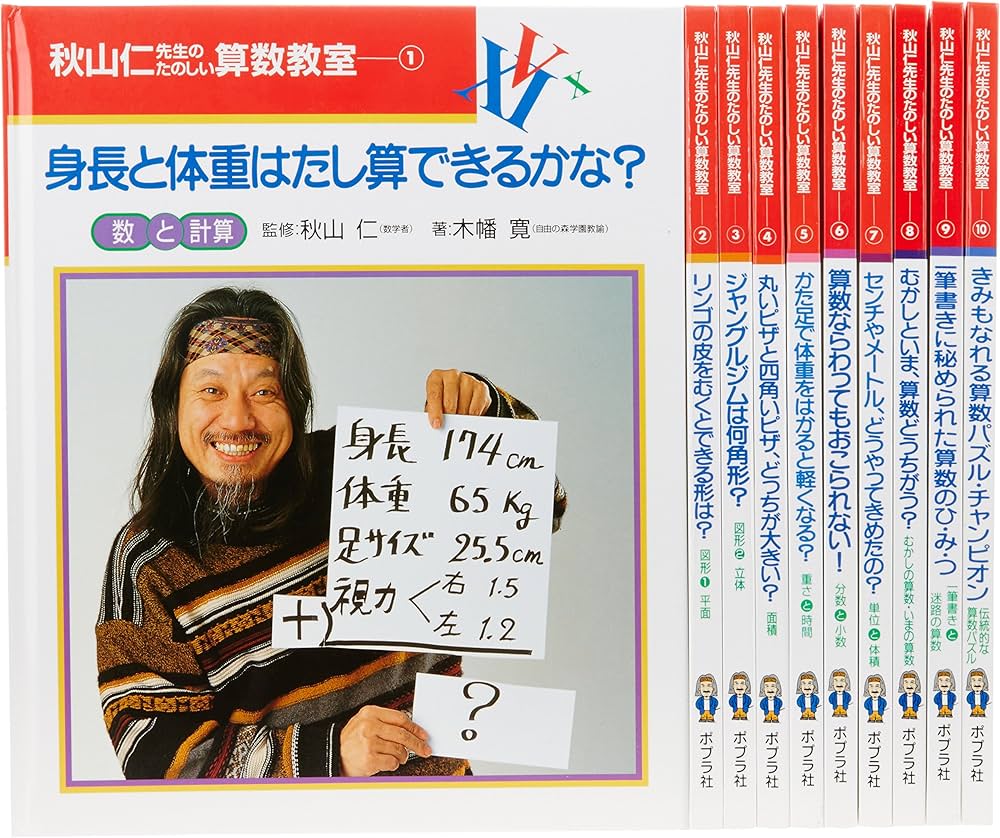 秋山仁先生のたのしい算数教室―①
身長と体重はたし算できるかな?
数と計算 監修:秋山 仁(数学者) 著:木幡 寛(自由の森学園教諭)
身長 174cm
体重 65Kg
足サイズ 25.5cm
視力 右 1.5
左 1.2
+)
?
秋山仁先生のたのしい算数教室―② リンゴの皮をむくとできる形は? 図形1平面 ポプラ社
秋山仁先生のたのしい算数教室―③ ジャングルジムは何角形? 図形2立体 ポプラ社
秋山仁先生のたのしい算数教室―④ 丸いピザと四角いピザ、どっちが大きい? 面積 ポプラ社
秋山仁先生のたのしい算数教室―⑤ かた足で体重をはかると軽くなる? 重さと時間 ポプラ社
秋山仁先生のたのしい算数教室―⑥ 算数ならわってもおこられない! 分数と小数 ポプラ社
秋山仁先生のたのしい算数教室―⑦ センチやメートル、どうやってきめたの? 単位と体積 ポプラ社
秋山仁先生のたのしい算数教室―⑧ むかしといま、算数どうちがう? むかしの算数・いまの算数 ポプラ社
秋山仁先生のたのしい算数教室―⑨ 一筆書きに秘められた算数のひ・み・つ 一筆書きと迷路の算数 ポプラ社
秋山仁先生のたのしい算数教室―⑩ きみもなれる算数パズル・チャンピオン 伝統的な算数パズル ポプラ社